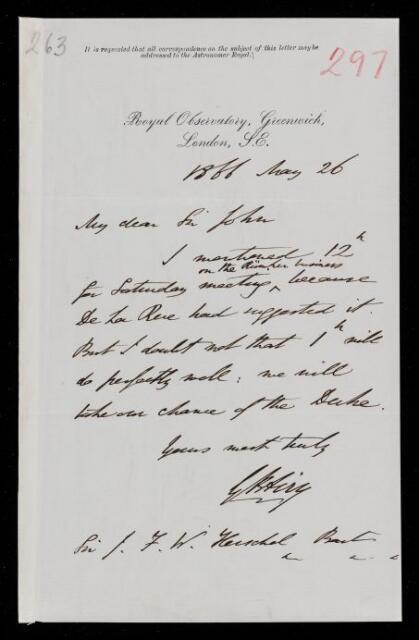 263
It is requested that all correspondence on the subject of this letter may be
addressed to the Astronomer Royal.
297
Royal Observatory, Greenwich,
London, S.E.
1866 May 26
My dear Sir John
I mentioned 12h
on the Rümker business
for Saturday meeting, because
De La Rue had suggested it.
But I doubt not that 1h will
do perfectly well: we will
take our chance of the Duke.
Yours most truly
G B Airy
Sir J. F. W. Herschel Bart